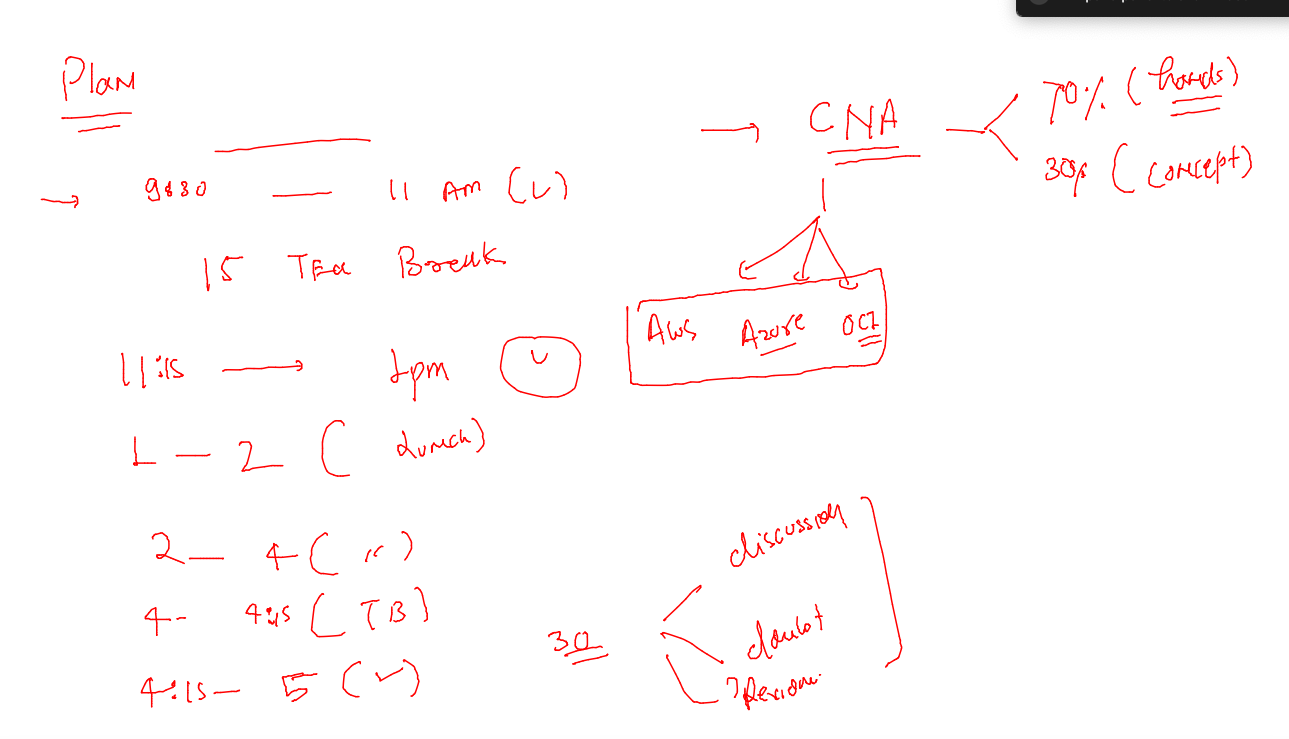 Plan
9:30 — 11 AM (L)
15 Tea Break
11:15 → 1pm L
1 - 2 (Lunch)
2 - 4 ( " )
4 - 4:15 (TB)
4:15 - 5 (✓)
→ CNA
70% (hands)
30% (concept)
AWS Azure OCI
30
discussion
doubt